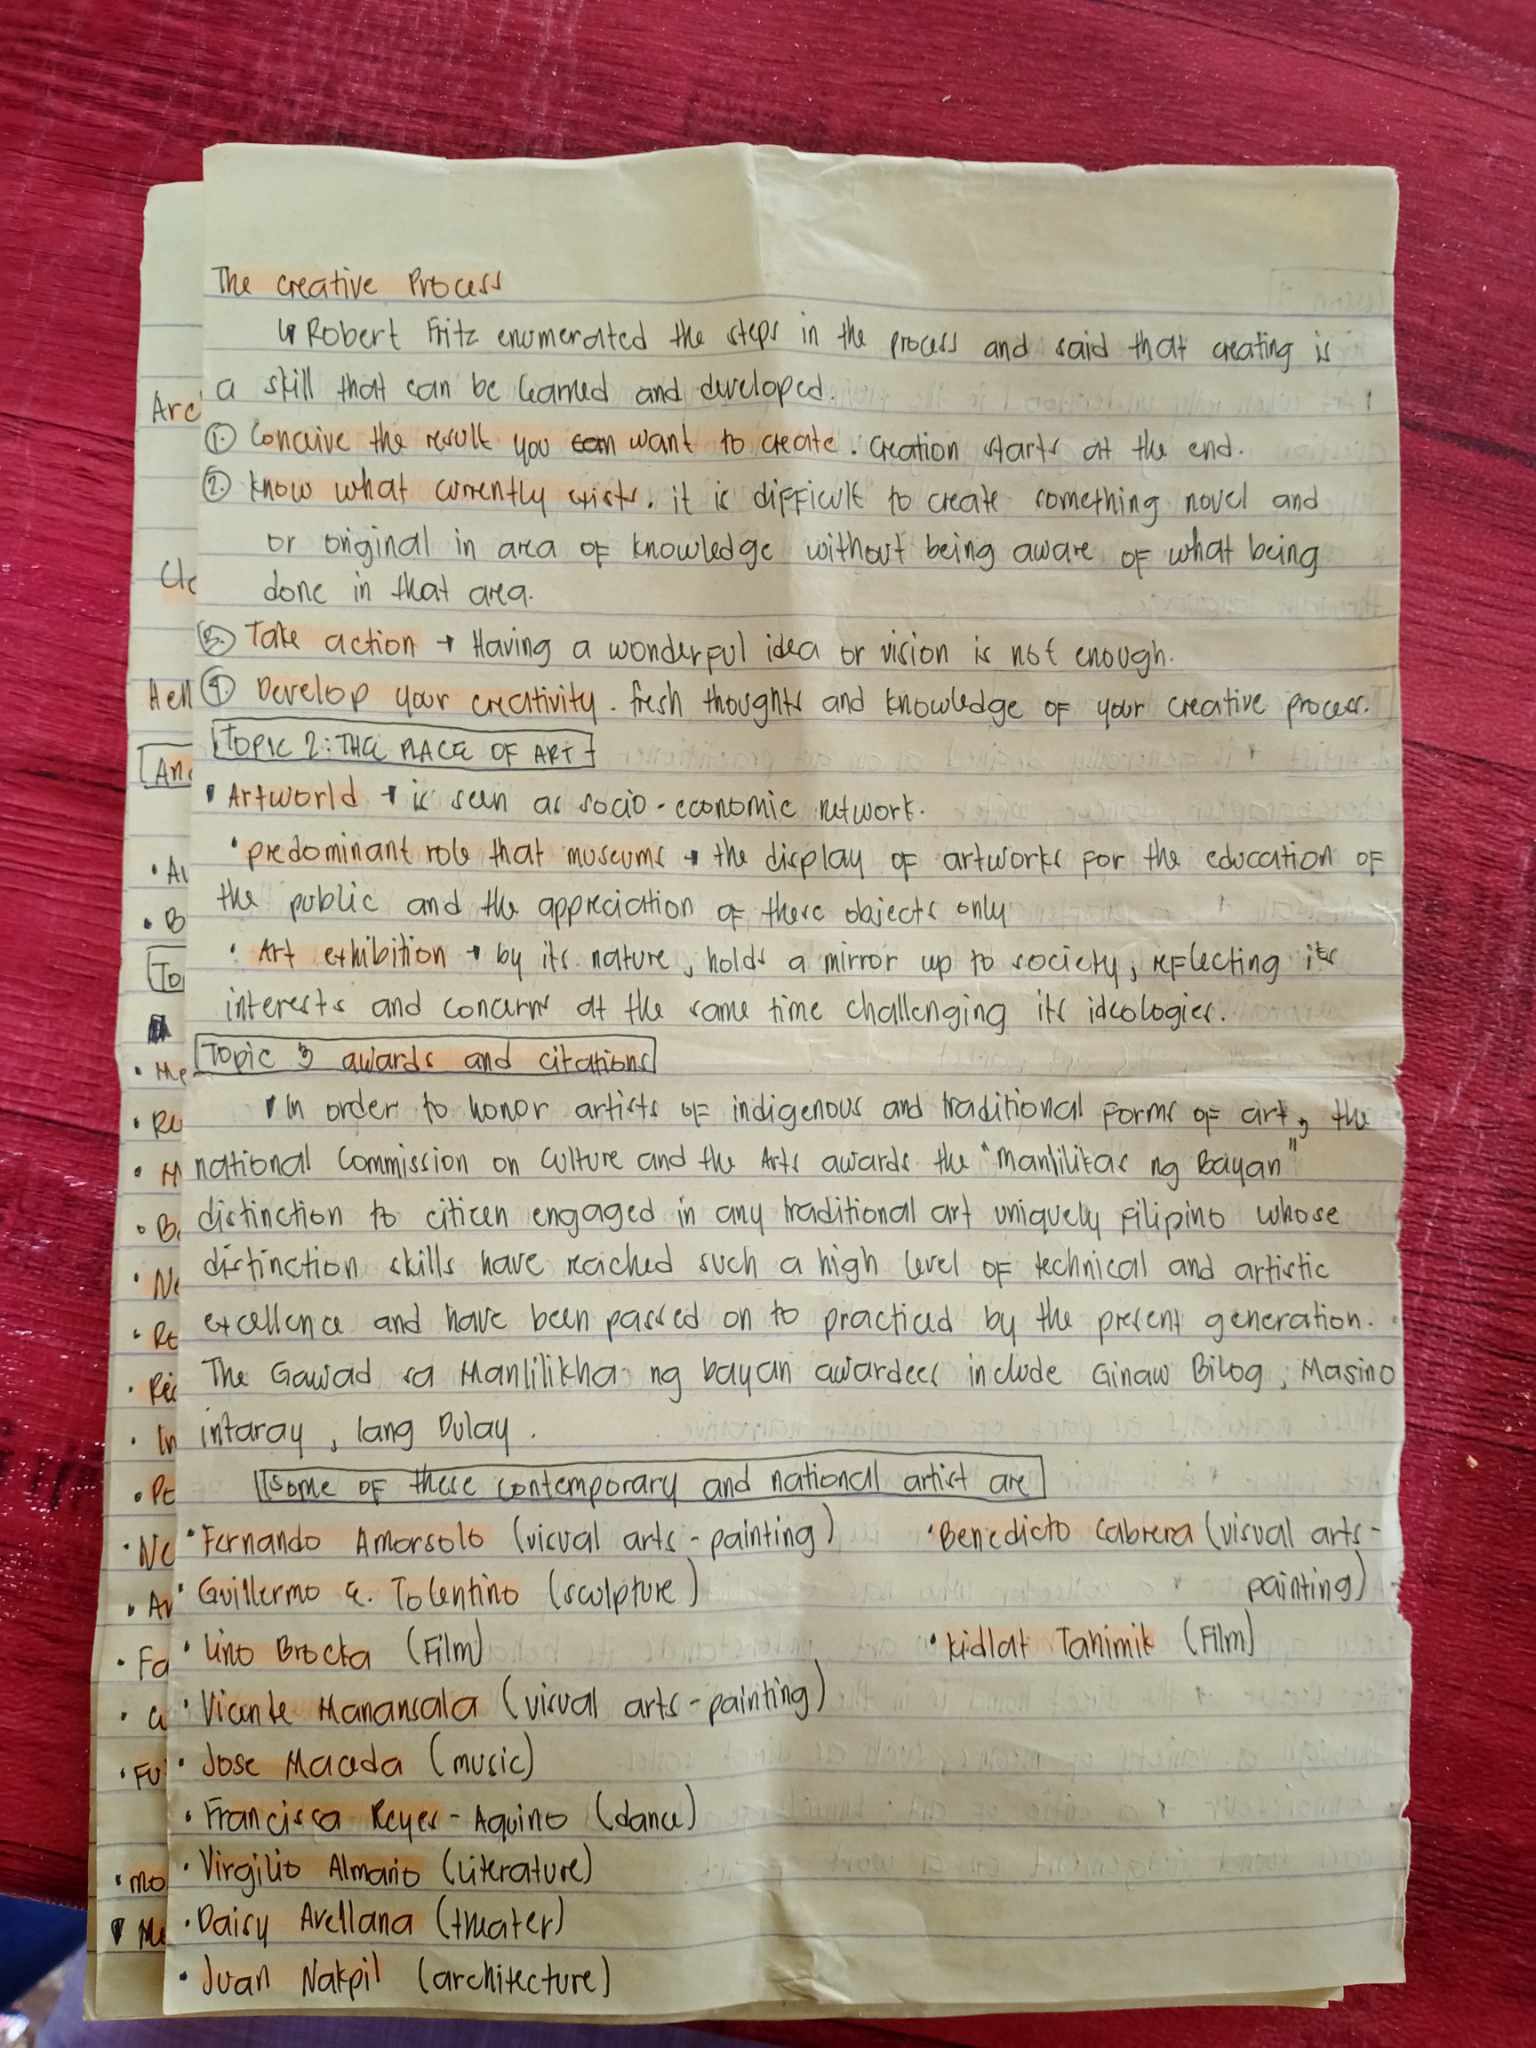 The creative Process
↳ Robert Fritz enumerated the steps in the process and said that creating is
a skill that can be learned and developed.
1. Conceive the result you can want to create. Creation starts at the end.
2. know what currently exists. it is difficult to create something novel and
or original in area of knowledge without being aware of what being
done in that area.
3. Take action → Having a wonderful idea or vision is not enough.
4. Develop your creativity. fresh thoughts and knowledge of your creative process.
TOPIC 2: THE PLACE OF ART
• Artworld → is seen as socio-economic network.
• predominant role that museums → the display of artworks for the education of
the public and the appreciation of these objects only
• Art exhibition → by its nature, holds a mirror up to society, reflecting its
interests and concerns at the same time challenging its ideologies.
Topic 3 awards and citations
In order to honor artists of indigenous and traditional forms of art, the
national Commission on Culture and the Arts awards the "Manlilikas ng Bayan"
distinction to citicen engaged in any traditional art uniquely Filipino whose
distinction skills have reached such a high level of technical and artistic
excellence and have been passed on to practiced by the present generation.
The Gawad sa Manlilikha ng bayan awardees include Ginaw Bilog, Masino
intaray, lang Dulay.
some of these contemporary and national artist are
• Fernando Amorsolo (visual arts - painting)
• Guillermo E. Tolentino (sculpture)
• Lino Brocka (Film)
• Vicente Manansala (visual arts - painting)
• Jose Maceda (music)
• Francisca Reyes - Aquino (dance)
• Virgilio Almario (Literature)
• Daisy Avellana (theater)
• Juan Nakpil (architecture)
• Benedicto Cabrera (visual arts -
painting)
• Kidlat Tahimik (Film)